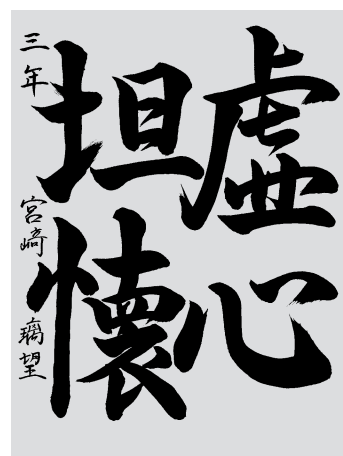 虚心
坦懐
三年 宮崎 璃望